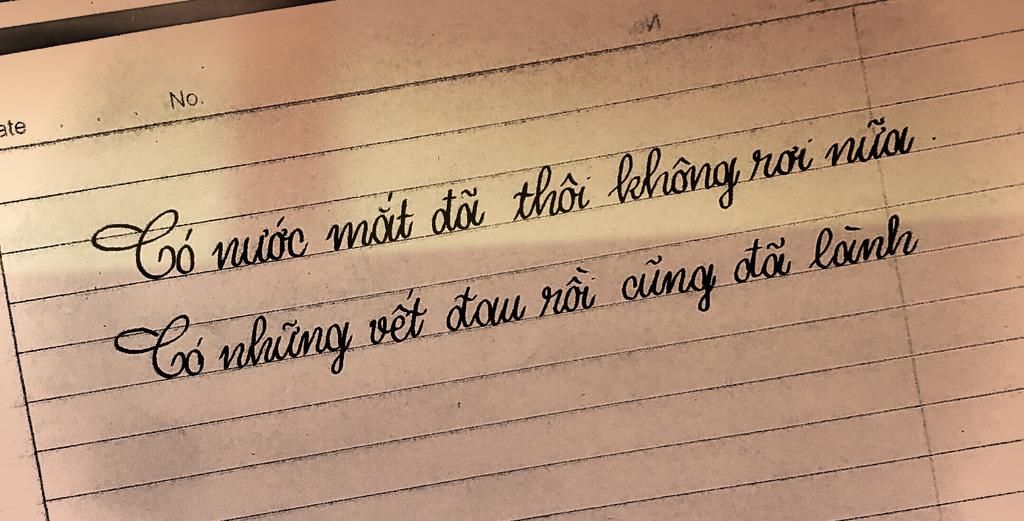 No.
Có nước mắt đã thôi không rơi nữa.
Có những vết đau rồi cũng đã lành